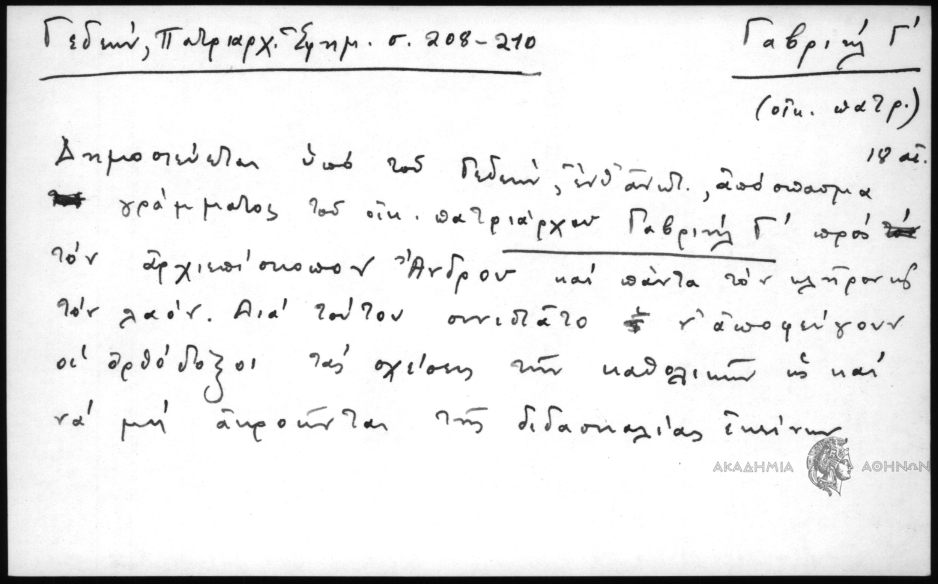 Γεδεών, Πατριαρχ. Ἐφημ. σ. 208-210
Γαβριήλ Γ'
(οἰκ. πατρ.)
18 αἰ.
Δημοσιεύεται ὑπό τοῦ Γεδεών, ἔνθ' ἀνωτ., ἀπόσπασμα
γράμματος τοῦ οἰκ. πατριάρχου Γαβριήλ Γ' πρός
τόν ἀρχιεπίσκοπον Ἄνδρου καί πάντα τόν κλῆρον καί
τόν λαόν. Διά τούτου συνιστᾶτο ν' ἀποφεύγουν
οἱ ὀρθόδοξοι τάς σχέσεις τῶν καθολικῶν ὡς καί
νά μή ἀκροῶνται τῆς διδασκαλίας ἐκείνων
ΑΚΑΔΗΜΙΑ ΑΘΗΝΩΝ